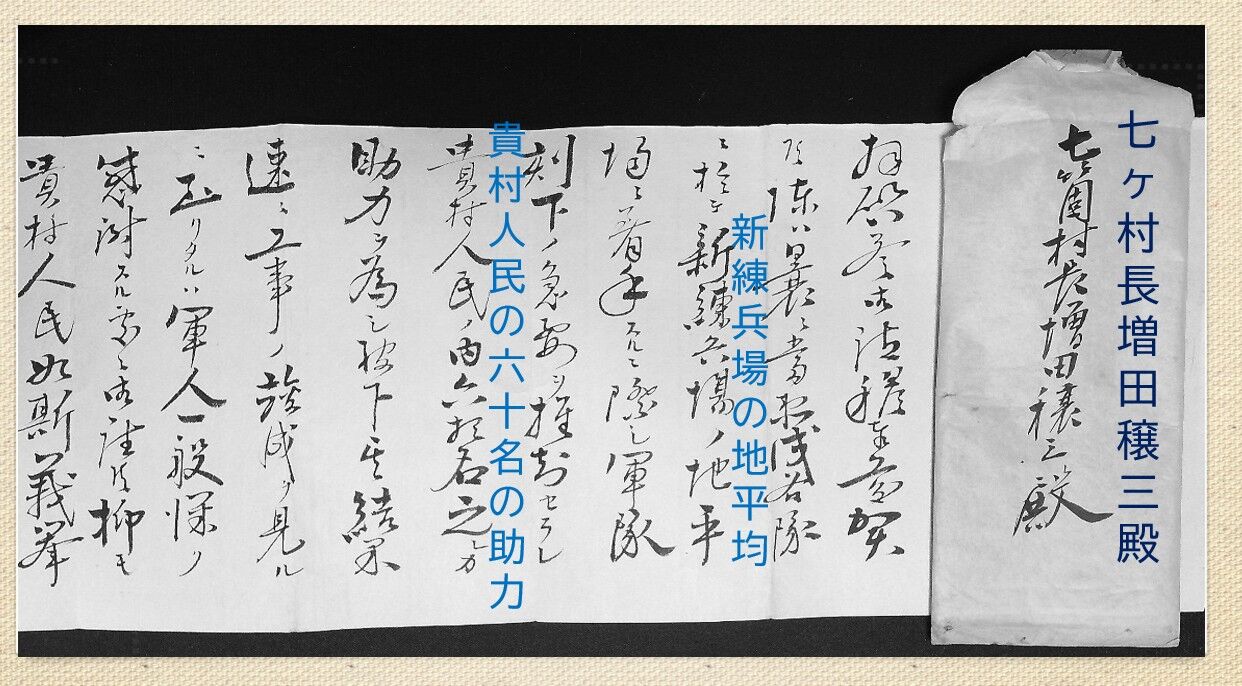 七ヶ村長増田穣三殿
七箇村長増田穣三殿
拝啓益御清穆奉慶賀
陳ハ曩ニ当衛戍各隊
ニ於テ新練兵場ノ地平
新練兵場の地平均
場ニ着手スルニ際シ軍隊
刻下ノ急要ヲ推知セラレ
貴村人民の六十名の助力
貴村人民ノ内六拾名之ヵ
助力ヲ為シ被下其結果
速ニ工事ノ竣成ヲ見ル
ニ至リタルハ軍人一般深ク
感謝スル処ニ御座候抑モ
貴村人民如斯義挙